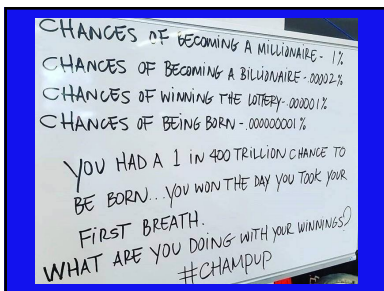 CHANCES OF BECOMING A MILLIONAIRE - 1%
CHANCES OF BECOMING A BILLIONAIRE - .00002%
CHANCES OF WINNING THE LOTTERY - .000001%
CHANCES OF BEING BORN - .00000001%
YOU HAD A 1 IN 400 TRILLION CHANCE TO
BE BORN... YOU WON THE DAY YOU TOOK YOUR
FIRST BREATH.
WHAT ARE YOU DOING WITH YOUR WINNINGS?
#CHAMPUP